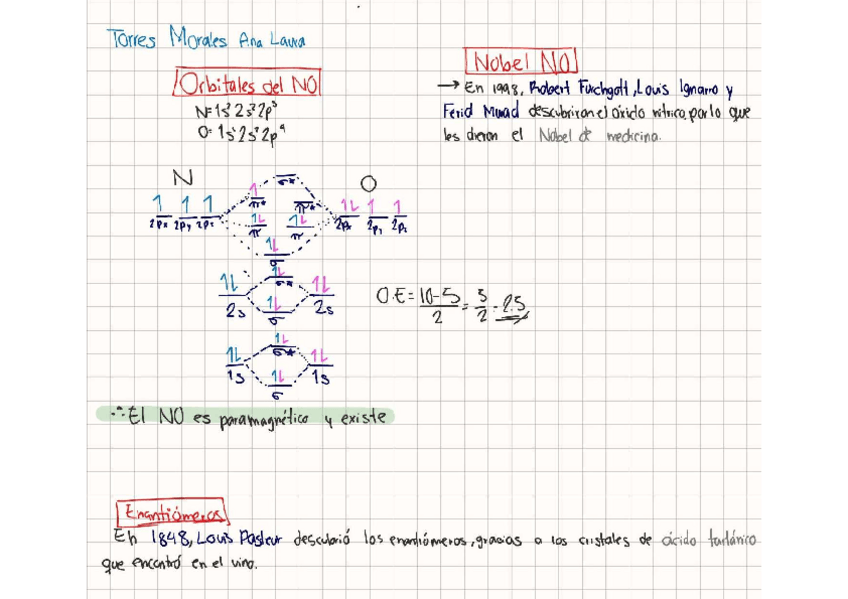 Torres Morales Ana Laura
Orbitales del NO
N=1s² 2s² 2p³
O=1s² 2s² 2p⁴
Nobel NO
→ En 1998, Robert Furchgott, Louis Ignarro y
Ferid Murad descubrieron el óxido nítrico, por lo que
les dieron el Nobel de medicina.
N O
σ*
1 1 1 1 π* π* 1L 1 1
2px 2py 2pz 1L π 1L π 2px 2py 2pz
1L σ
1L 1L σ* 1L
2s 1L σ 2s
O.E = 10-5 / 2 = 5 / 2 = 2.5
1L 1L σ* 1L
1s 1L σ 1s
∴ El NO es paramagnético y existe
Enantiómeros
En 1848, Louis Pasteur descubrió los enantiómeros, gracias a los cristales de ácido tartánico
que encontró en el vino.